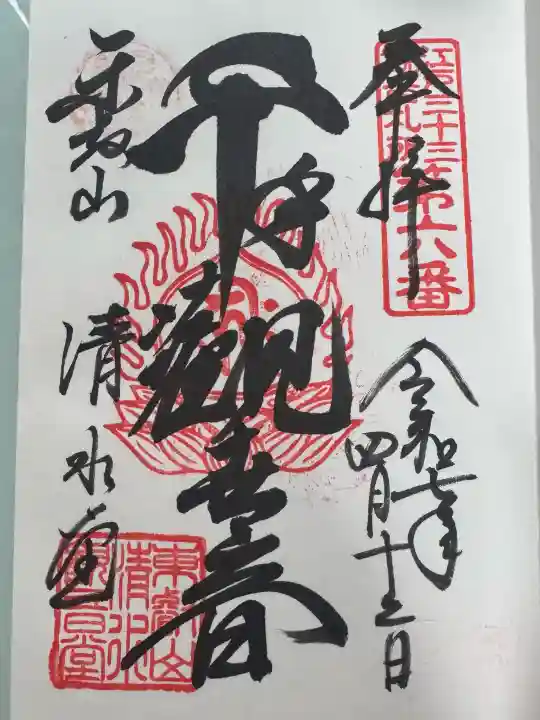 江戸三十三
札所第六番
奉拝
令和七年
四月十三日
千手觀世音
東叡山
清水堂
東叡山
清水
観音堂